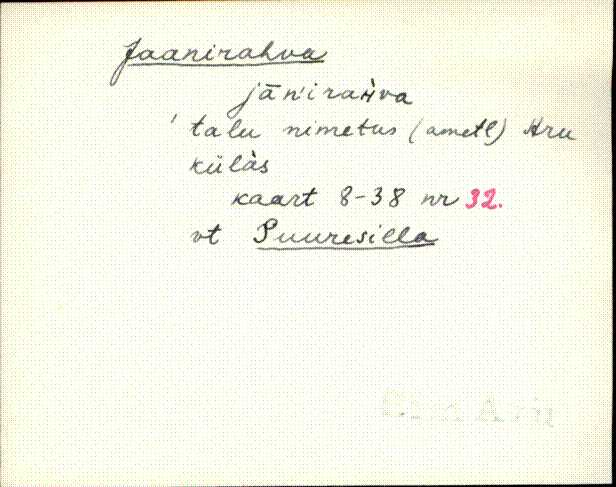 Jaanirahva
jāńirahva
' talu nimetus (ametl) Hru
külàs
kaart 8-38 nr 32.
vt Suuresilla